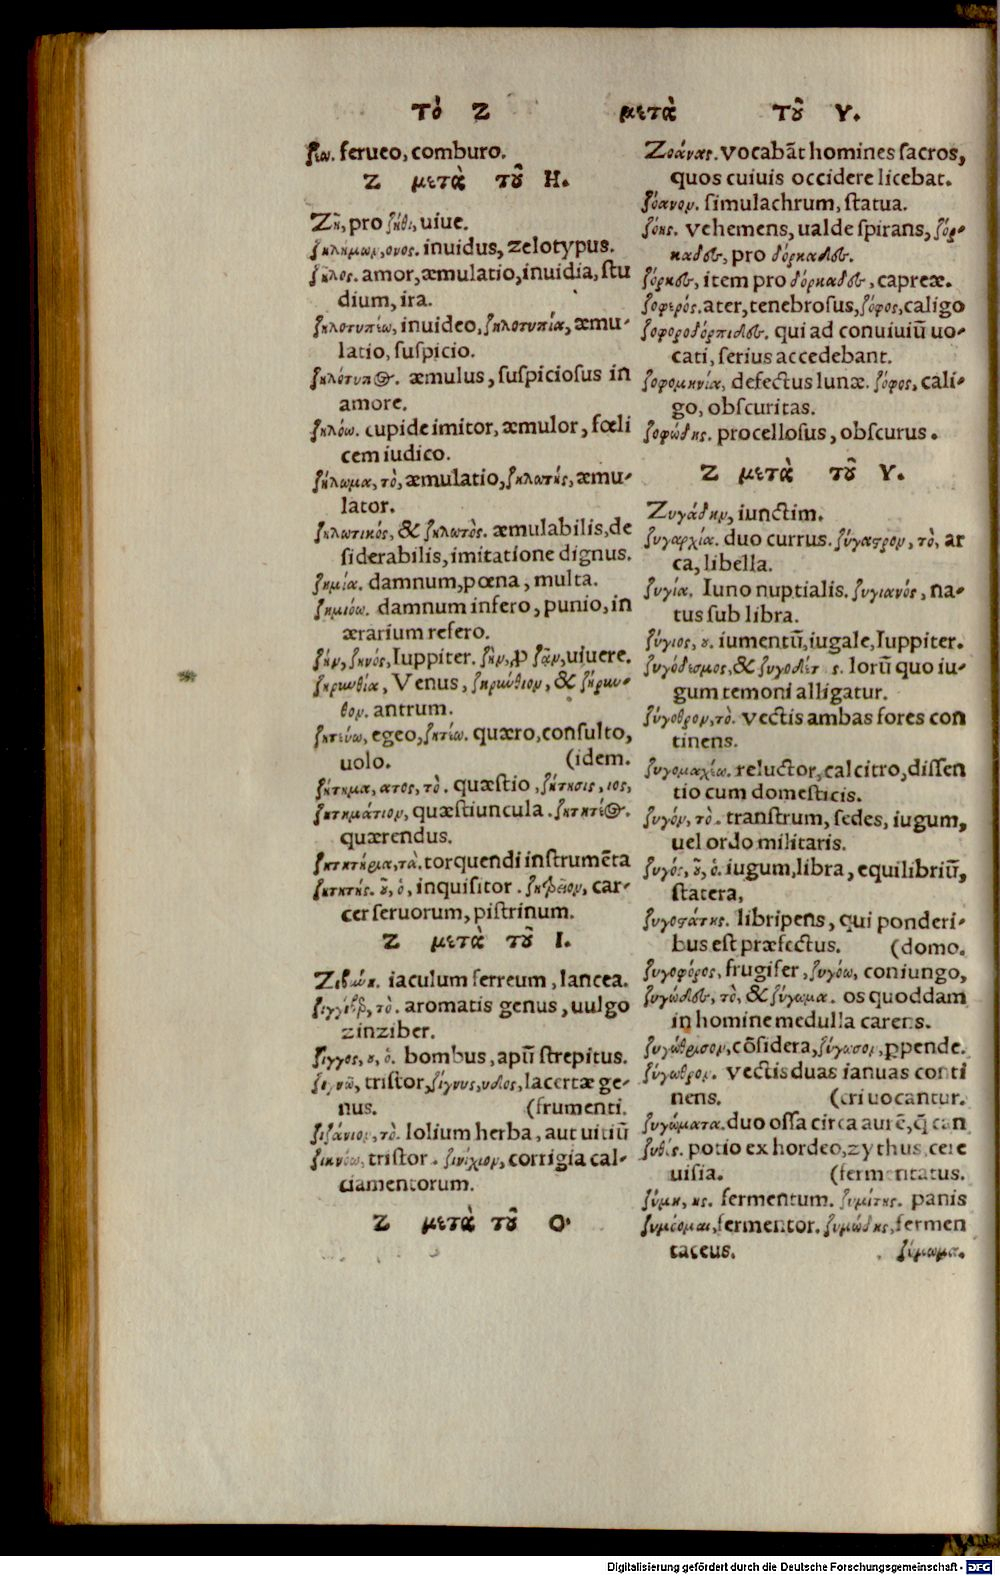 Τὸ Ζ μετὰ τοῦ Υ.
ζέω. ferueo, comburo.
Ζ μετὰ τοῦ Η.
Ζῆ, pro ζῆθι, uiue.
ζηλήμων, ονος. inuidus, zelotypus.
ζῆλος. amor, æmulatio, inuidia, stu
dium, ira.
ζηλοτυπέω, inuideo, ζηλοτυπία, æmu-
latio, suspicio.
ζηλότυπος. æmulus, suspiciosus in
amore.
ζηλόω. cupide imitor, æmulor, fœli
cem iudico.
ζήλωμα, τὸ, æmulatio, ζηλωτής, æmu-
lator.
ζηλωτικός, & ζηλωτὸς. æmulabilis, de
siderabilis, imitatione dignus.
ζημία. damnum, pœna, multa.
ζημιόω. damnum infero, punio, in
ærarium refero.
ζήν, ζηνός, Iuppiter. ζῆν, ꝓ ζᾶν, uiuere.
ζηρινθία, Venus, ζηρίνθιον, & ζήριν-
θον. antrum.
ζητεύω, egeo, ζητέω. quæro, consulto,
uolo. (idem.
ζήτημα, ατος, τὸ. quæstio, ζήτησις, ιος,
ζητημάτιον, quæstiuncula. ζητητέος.
quærendus.
ζητητήρια, τὰ. torquendi instrumēta
ζητητής. οῦ, ὁ, inquisitor. ζητρεῖον, car-
cer seruorum, pistrinum.
Ζ μετὰ τοῦ Ι.
Ζιβύνη. iaculum ferreum, lancea.
τὸ. aromatis genus, uulgo
zinziber.
ζίγγος, ου, ὁ. bombus, apū strepitus.
tristor, ζίγνυς, υδος, lacertæ ge-
nus. (frumenti.
ζιζάνιον, τὸ. lolium herba, aut uitiū
ζικνόω, tristor. ζινίχιον, corrigia cal-
ciamentorum.
Ζ μετὰ τοῦ Ο.
Ζοάνας. vocabāt homines sacros,
quos cuiuis occidere licebat.
ζόανον. simulachrum, statua.
ζόης. vehemens, ualde spirans, ζόρ-
καδες, pro δόρκαδες.
ζόρκες, item pro δόρκαδες, capreæ.
ζοφερός. ater, tenebrosus, ζόφος, caligo
ζοφοροδόρπιδες. qui ad conuiuiū uo-
cati, serius accedebant.
ζοφομηνία, defectus lunæ. ζόφος, cali-
go, obscuritas.
ζοφώδης. procellosus, obscurus.
Ζ μετὰ τοῦ Υ.
Ζυγάδην, iunctim.
ζυγαρχία. duo currus. ζύγαστρον, τὸ, ar
ca, libella.
ζυγία. Iuno nuptialis. ζυγιανός, na-
tus sub libra.
ζύγιος, ου. iumentū, iugale, Iuppiter.
ζυγόδεσμος, & ζυγοδέτ ς. lorū quo iu-
gum temoni alligatur.
ζύγοθρον, τὸ. vectis ambas fores con
tinens.
ζυγομαχέω. reluctor, calcitro, dissen
tio cum domesticis.
ζυγόν, τὸ. transtrum, sedes, iugum,
uel ordo militaris.
ζυγός, οῦ, ὁ. iugum, libra, equilibriū,
statera,
ζυγοστάτης. libripens, qui ponderi-
bus est præfectus. (domo.
ζυγοφόρος, frugifer, ζυγόω, coniungo,
ζυγώδες, τὸ, & ζύγωμα. os quoddam
in homine medulla carens.
ζυγώθρισον, cōsidera, ζύγωσον, ꝑpende.
ζύγωθρον. vectis duas ianuas conti
nens. (cri uocantur.
ζυγώματα. duo ossa circa aurē, q̄ can
ζυθίς. potio ex hordeo, zythus, cere
uisia. (fermentatus.
ζύμη, ης. fermentum. ζυμίτης. panis
ζυμέομαι, fermentor. ζυμώδης, fermen
taceus. ζύμωμα.
Digitalisierung gefördert durch die Deutsche Forschungsgemeinschaft - DFG